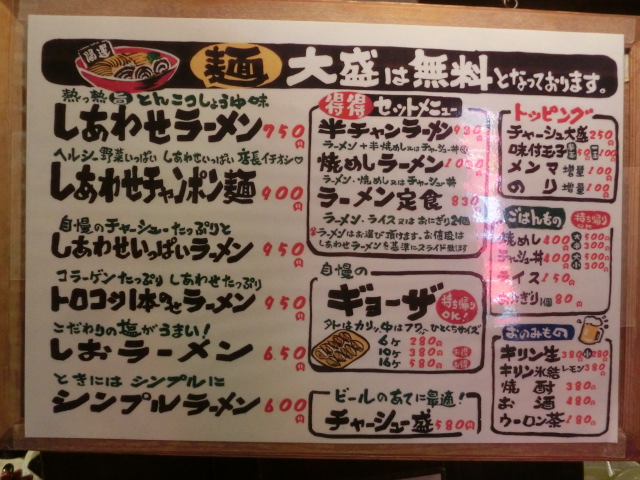 開運
麺 大盛は無料となっております。
熱っ熱とんこつしょうゆ味
しあわせラーメン 750円
ヘルシー野菜いっぱい しあわせいっぱい 店長イチオシ♡
しあわせチャンポン麺 900円
自慢のチャーシューたっぷりと
しあわせいっぱいラーメン 950円
コラーゲンたっぷり しあわせたっぷり
トロコツ1本のせラーメン 950円
こだわりの塩がうまい!
しおラーメン 650円
ときには シンプルに
シンプルラーメン 600円
得得 セットメニュー
半チャンラーメン 930円
ラーメン+半焼めし又はチャーシュー丼
焼めしラーメン
ラーメン・焼めし又はチャーシュー丼
ラーメン定食 830円
ラーメン・ライス又はおにぎり2個
ラーメンはお選び頂けます。お値段は
しあわせラーメンを基準にスライド致します
自慢の
ギョーザ 持ち帰りOK!
外はカリッ、中はフワ〜 ひとくちサイズ
6ヶ 280円
10ヶ 380円 お得
16ヶ 580円 お得
ビールのあてに最適!
チャーシュー盛 580円
トッピング
チャーシュー大盛 250円
味付玉子 100円
メンマ 増量 100円
のり 増量 100円
ごはんもの 持ち帰りOK
焼めし 400円 大500円 小300円
チャーシュー丼 400円 大500円 小300円
ライス 150円
おにぎり 1個 80円
おのみもの
キリン生 380円 小280円
キリン氷結 レモン 380円
焼酎 380円
お酒 480円
ウーロン茶 180円